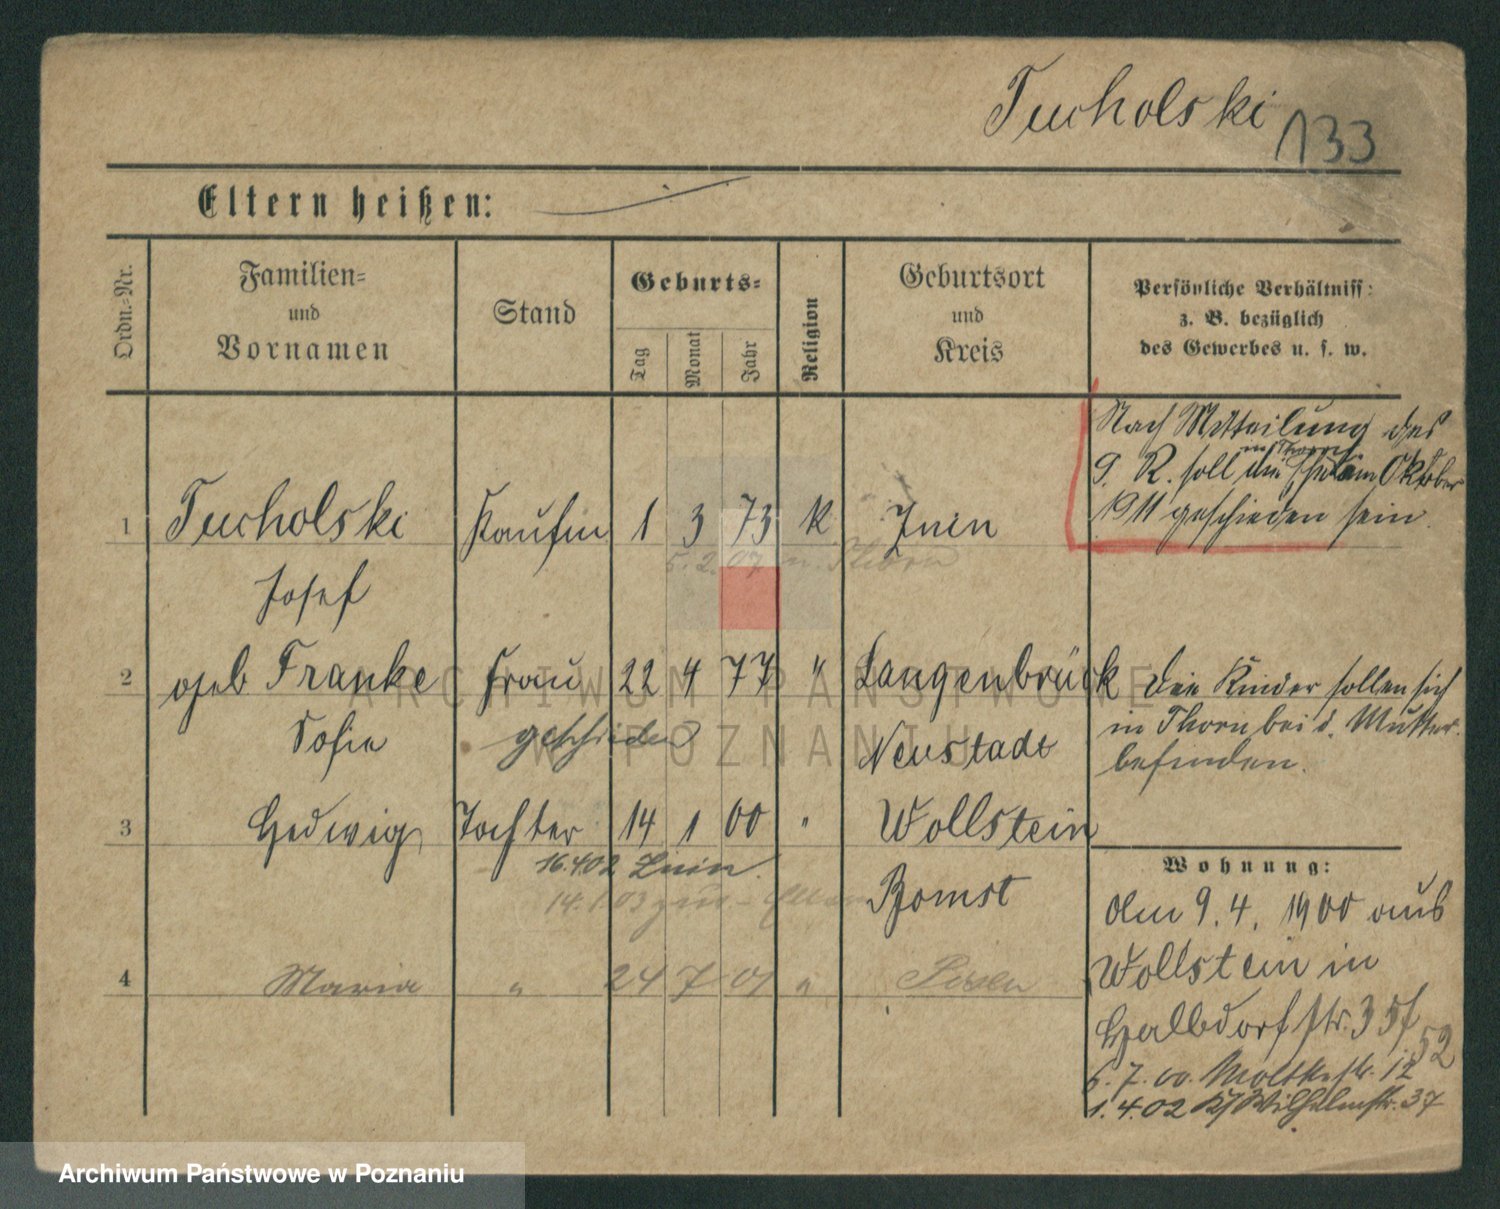 Tucholski 133
Eltern heißen:
Ordn.-Nr.
Familien-
und
Vornamen
Stand
Geburts-
Tag
Monat
Jahr
Religion
Geburtsort
und
Kreis
Persönliche Verhältniss:
z. B. bezüglich
des Gewerbes u. s. w.
Nach Mitteilung des
in Thorn
G. R. soll die Ehe am Oktober
1911 geschieden sein.
1 Tucholski Kaufm 1 3 73 K Znin
5.2.07 n. Thorn
Josef
2 geb Franke Frau 22 4 77 " Langenbrück
Sofie geschieden Neustadt
Die Kinder sollen sich
in Thorn bei d. Mutter
befinden.
3 Hedwig Tochter 14 1 00 " Wollstein
16.4.02 Znin.
14.1.03 zur
Bomst
4 Maria " 24 7 01 " Posen
Wohnung:
Am 9.4.1900 aus
Wollstein in
Halbdorfstr. 35
52
5.7.00. Moltkestr. 12
1.4.02 Wilhelmstr. 37
ARCHIWUM PAŃSTWOWE
W POZNANIU
Archiwum Państwowe w Poznaniu